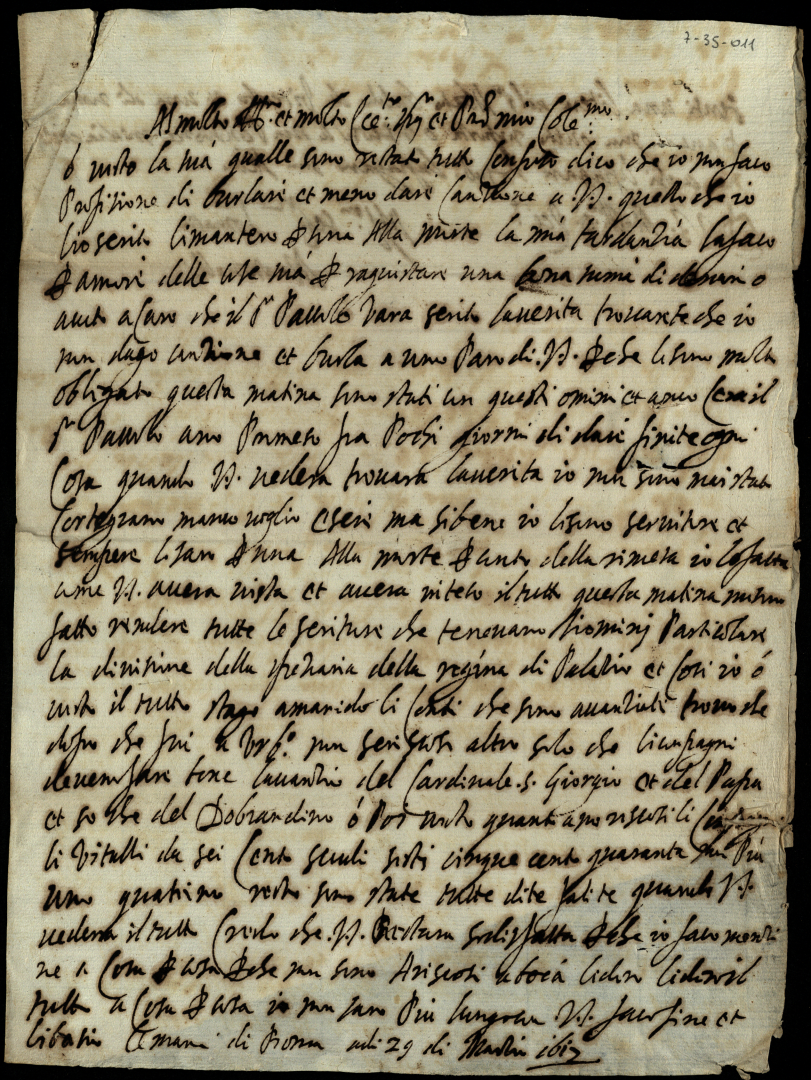 7-35-011
Al molto Ill.re et molto Ecc.te Sig.r et Pad.n mio Cole.mo
ò visto la mia qualle sono restato tutto Confuso dico che io non faco
Profisione di burlare et meno dare Canzione a V.S. quello che io
lio scrito limantero P una Alla morte la mia tardantia lafaco
P amore delle cose mia P raquistare una bona suma di denari o
auuto a Caro che il s.r Pauulo vara scrito lauerita trouarete che io
non dago canzione et burla a uno Paro di V.S. Pche li sono molto
obligato questa matina sono stati qui questi omini et anco Cera il
s.r Pauulo ano Promeso fra Pochi giorni di dare finite ogni
Cosa quando V.S. vedera trouara lauerita io non sono mai stato
Cortegiano manco voglio esere ma sibene io li sono seruitore et
sempere lisaro P una Alla morte P conto della rimesa io lo fatta
come V.S. auera vista et auera inteso il tutto questa matina
fatto rendere tutte le scriture che teneuano Particolare
la diuisione della della regina di Palatio et Cosi io ò
visto il tutto stago li Conti che sono auantiati trouo che
dopo che fui a non scriscosi altro solo che licompagni
deueno fare bone lauantio del Cardinale s. Giorgio et del Papa
et so che del Dobrandino ò Poi visto quant ano riscosi li
li Vitalli da sei Cento scudi cinque cento quaranta non Più
uno quatrino resto sono state tutte dite falite quando V.S.
vedera il tutto Credo che V.S. Restara sodisfatta Pche io faco
a Cosa P Cosa Pche non sono a boca lidiro il
tutto a Cosa P Cosa io non saro Più lungo a V.S. faco fine et
li bacio le mani di Roma adi 29 di Marzo 1617